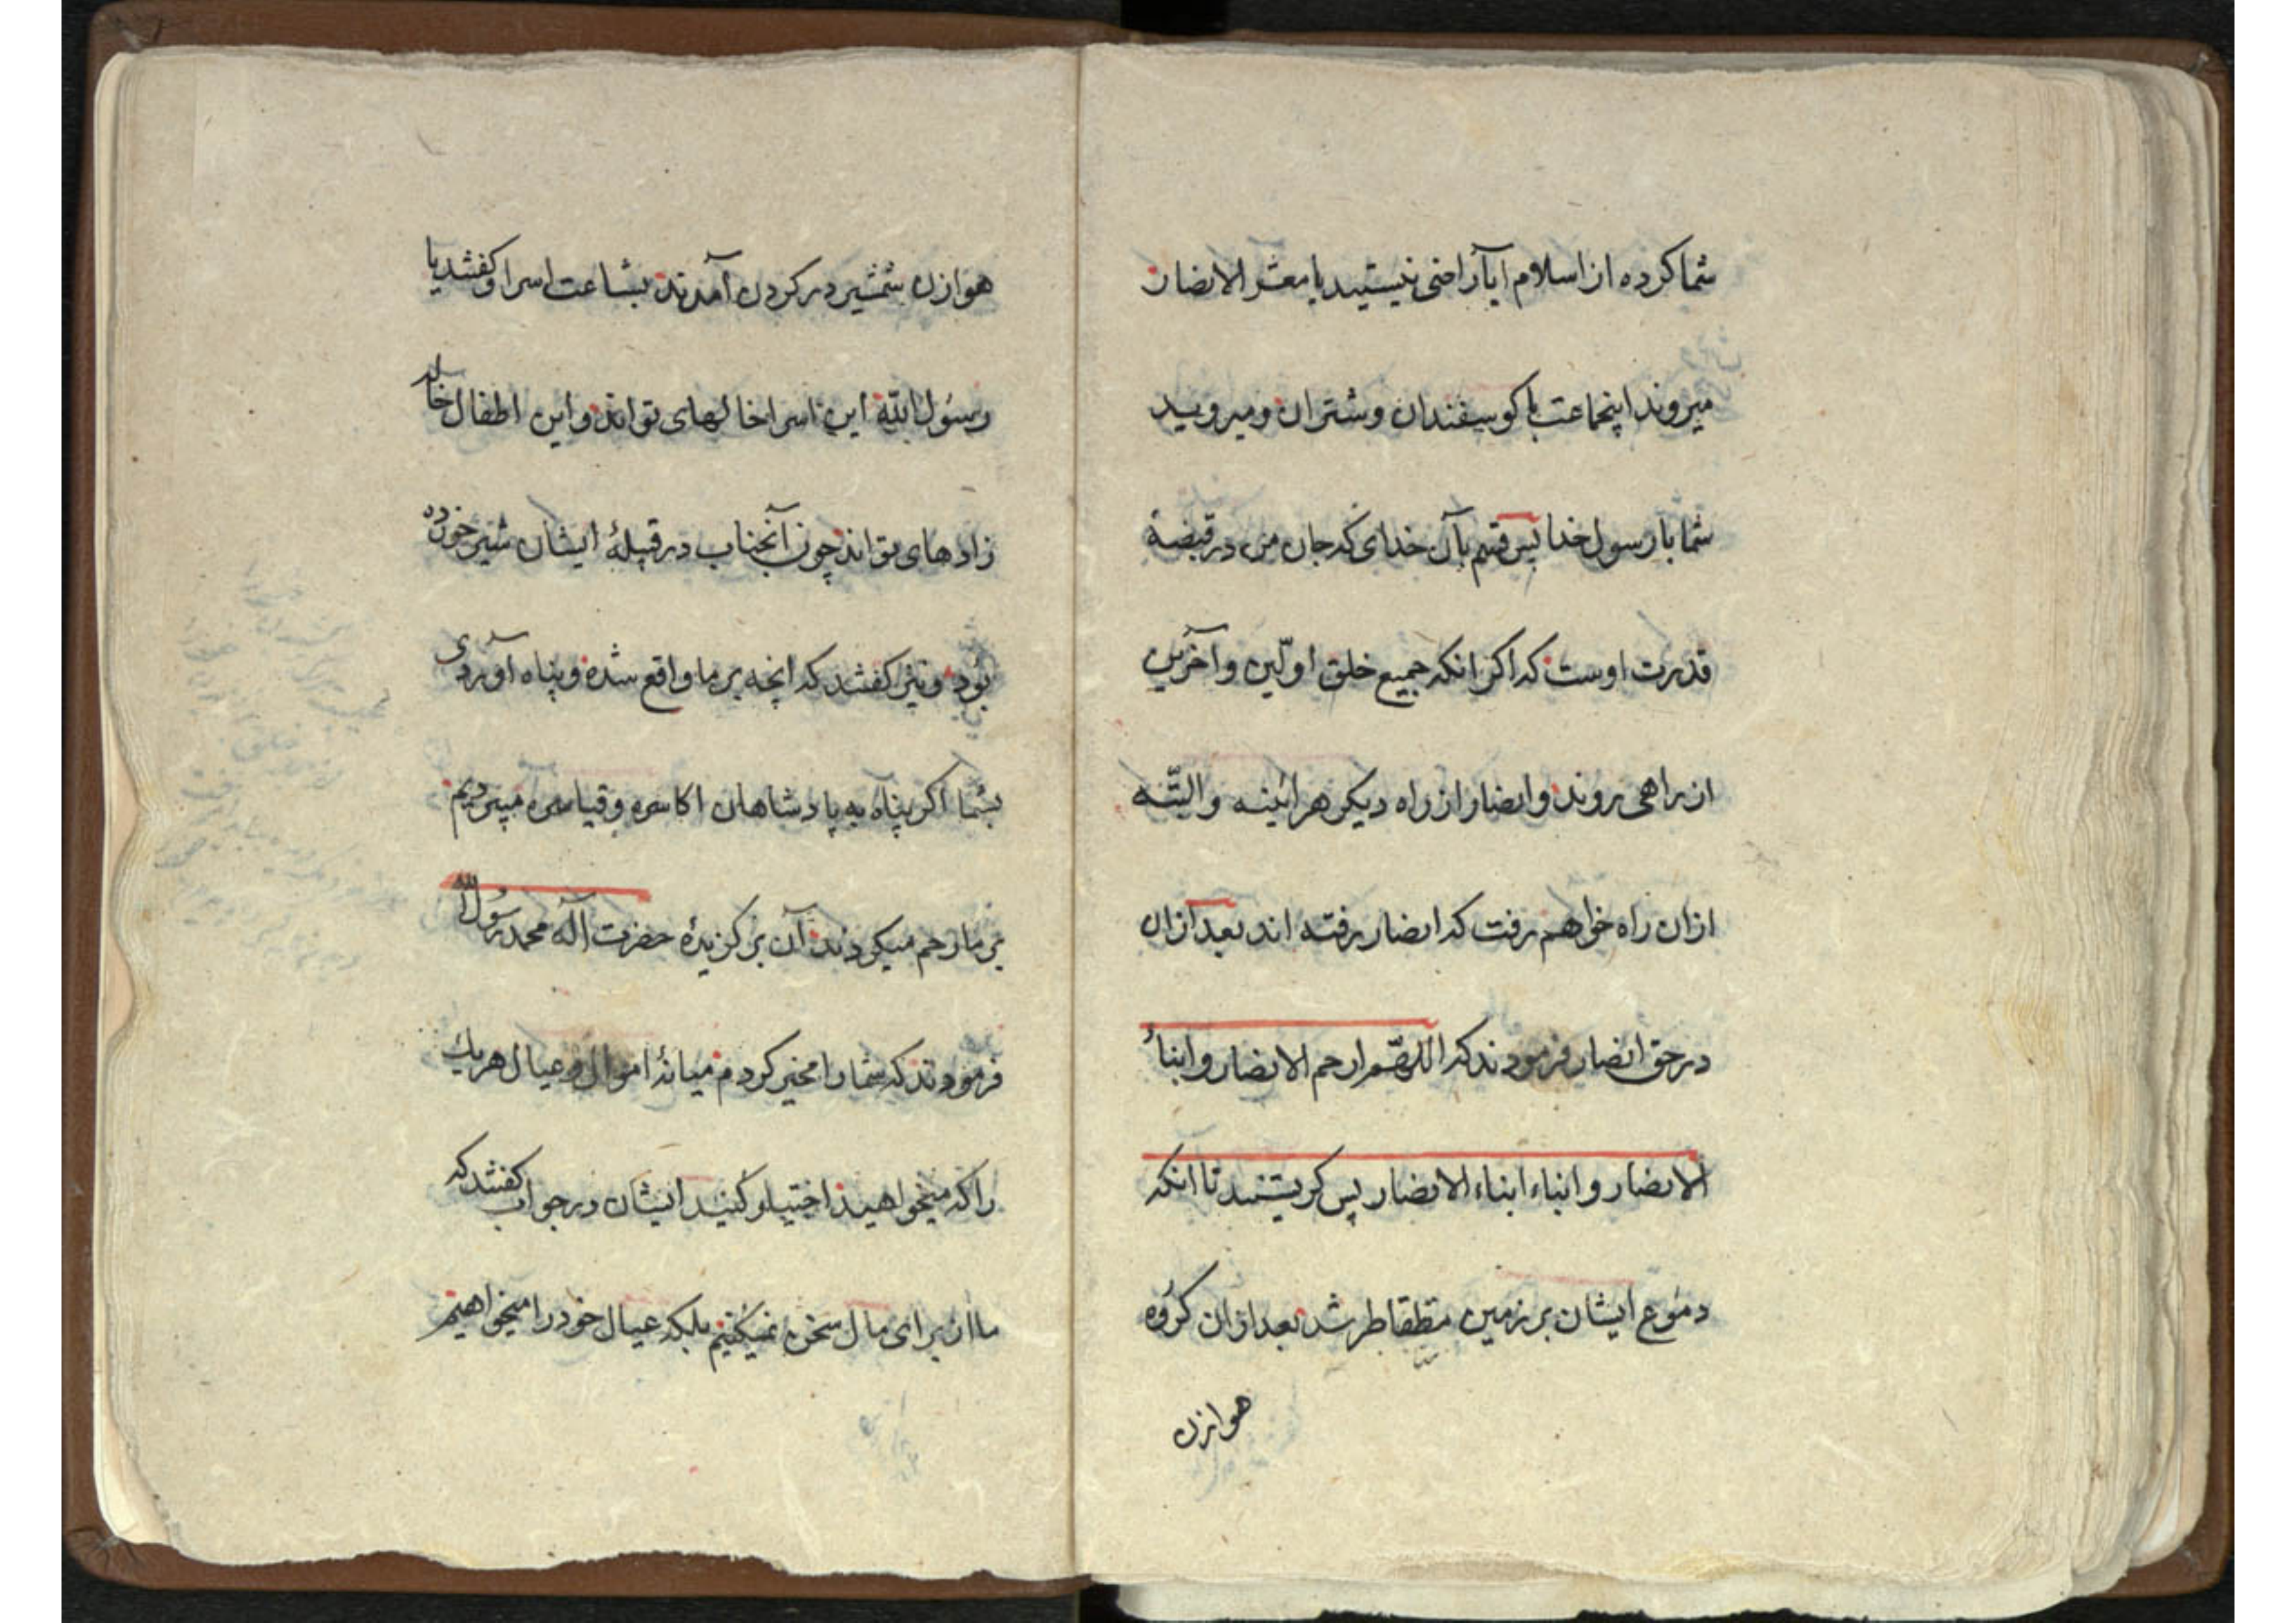 شما کرده از اسلام ایا راضی نیستید یا معشر الانصار
میروند اینجماعت با کوسفندان و شتران و میروید
شما با رسول خدا پس قسم بآن خدای که جان من در قبضهٔ
قدرت اوست که اکر انکه جمیع خلق اوّلین و آخرین
از راهی روند و انصار از راه دیکر هرائینه و البتّه
ازان راه خواهم رفت که انصار رفته اند بعد ازان
در حق انصار فرمودند که اللهّم ارحم الانصار و ابناءُ
الانصار و ابناء ابناء الانصار پس کریستند تا انکه
دموع ایشان بر زمین متقاطر شد بعد ازان کروه
هوازن
هوازن شمشیر در کردن آمدند بشاعت اسرا و کفتند یا
رسول اللّه این اسرا خالهای تو اند و این اطفال خاله
زادهای تو اند چون آنجناب در قبیلهٔ ایشان شیر خورده
بود و نیز کفتند که انچه بر ما واقع شده و پناه آوردی
بشما اکر پناه به پادشاهان اکاسره و قیاصره میبردیم
بر ما رحم میکردند آن برکزیدهٔ حضرت آله محمد رسول الله
فرمودند که شما را مخیر کردم میانهٔ اموال و عیال هریك
را که میخواهید اختیار کنید ایشان در جواب کفتند که
ما از برای مال سخن نمیکنیم بلکه عیال خود را میخواهیم